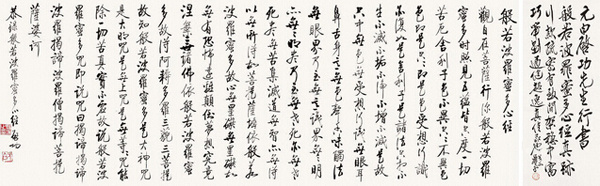 元白啓功先生行書
般若波羅蜜多心經真跡
般若波羅蜜多心經
觀自在菩薩行深般若波羅
蜜多時照見五蘊皆空度一切
苦厄舍利子色不異空空不異色
色即是空空即是色受想行識
亦復如是舍利子是諸法空相不
生不滅不垢不淨不增不減是故
空中無色無受想行識無眼耳
鼻舌身意無色聲香味觸法
無眼界乃至無意識界無無明
亦無無明盡乃至無老死亦無老
死盡無苦集滅道無智亦無得
以無所得故菩提薩埵依般若
波羅蜜多故心無罣礙無罣礙故
無有恐怖遠離顛倒夢想究竟
涅槃三世諸佛依般若波羅蜜
多故得阿耨多羅三藐三菩提
故知般若波羅蜜多是大神咒
是大明咒是無上咒是無等等咒能
除一切苦真實不虛故說般若
波羅蜜多咒即說咒曰揭諦揭諦
波羅揭諦波羅僧揭諦菩提
薩婆訶
恭錄般若波羅蜜多心經 啟功